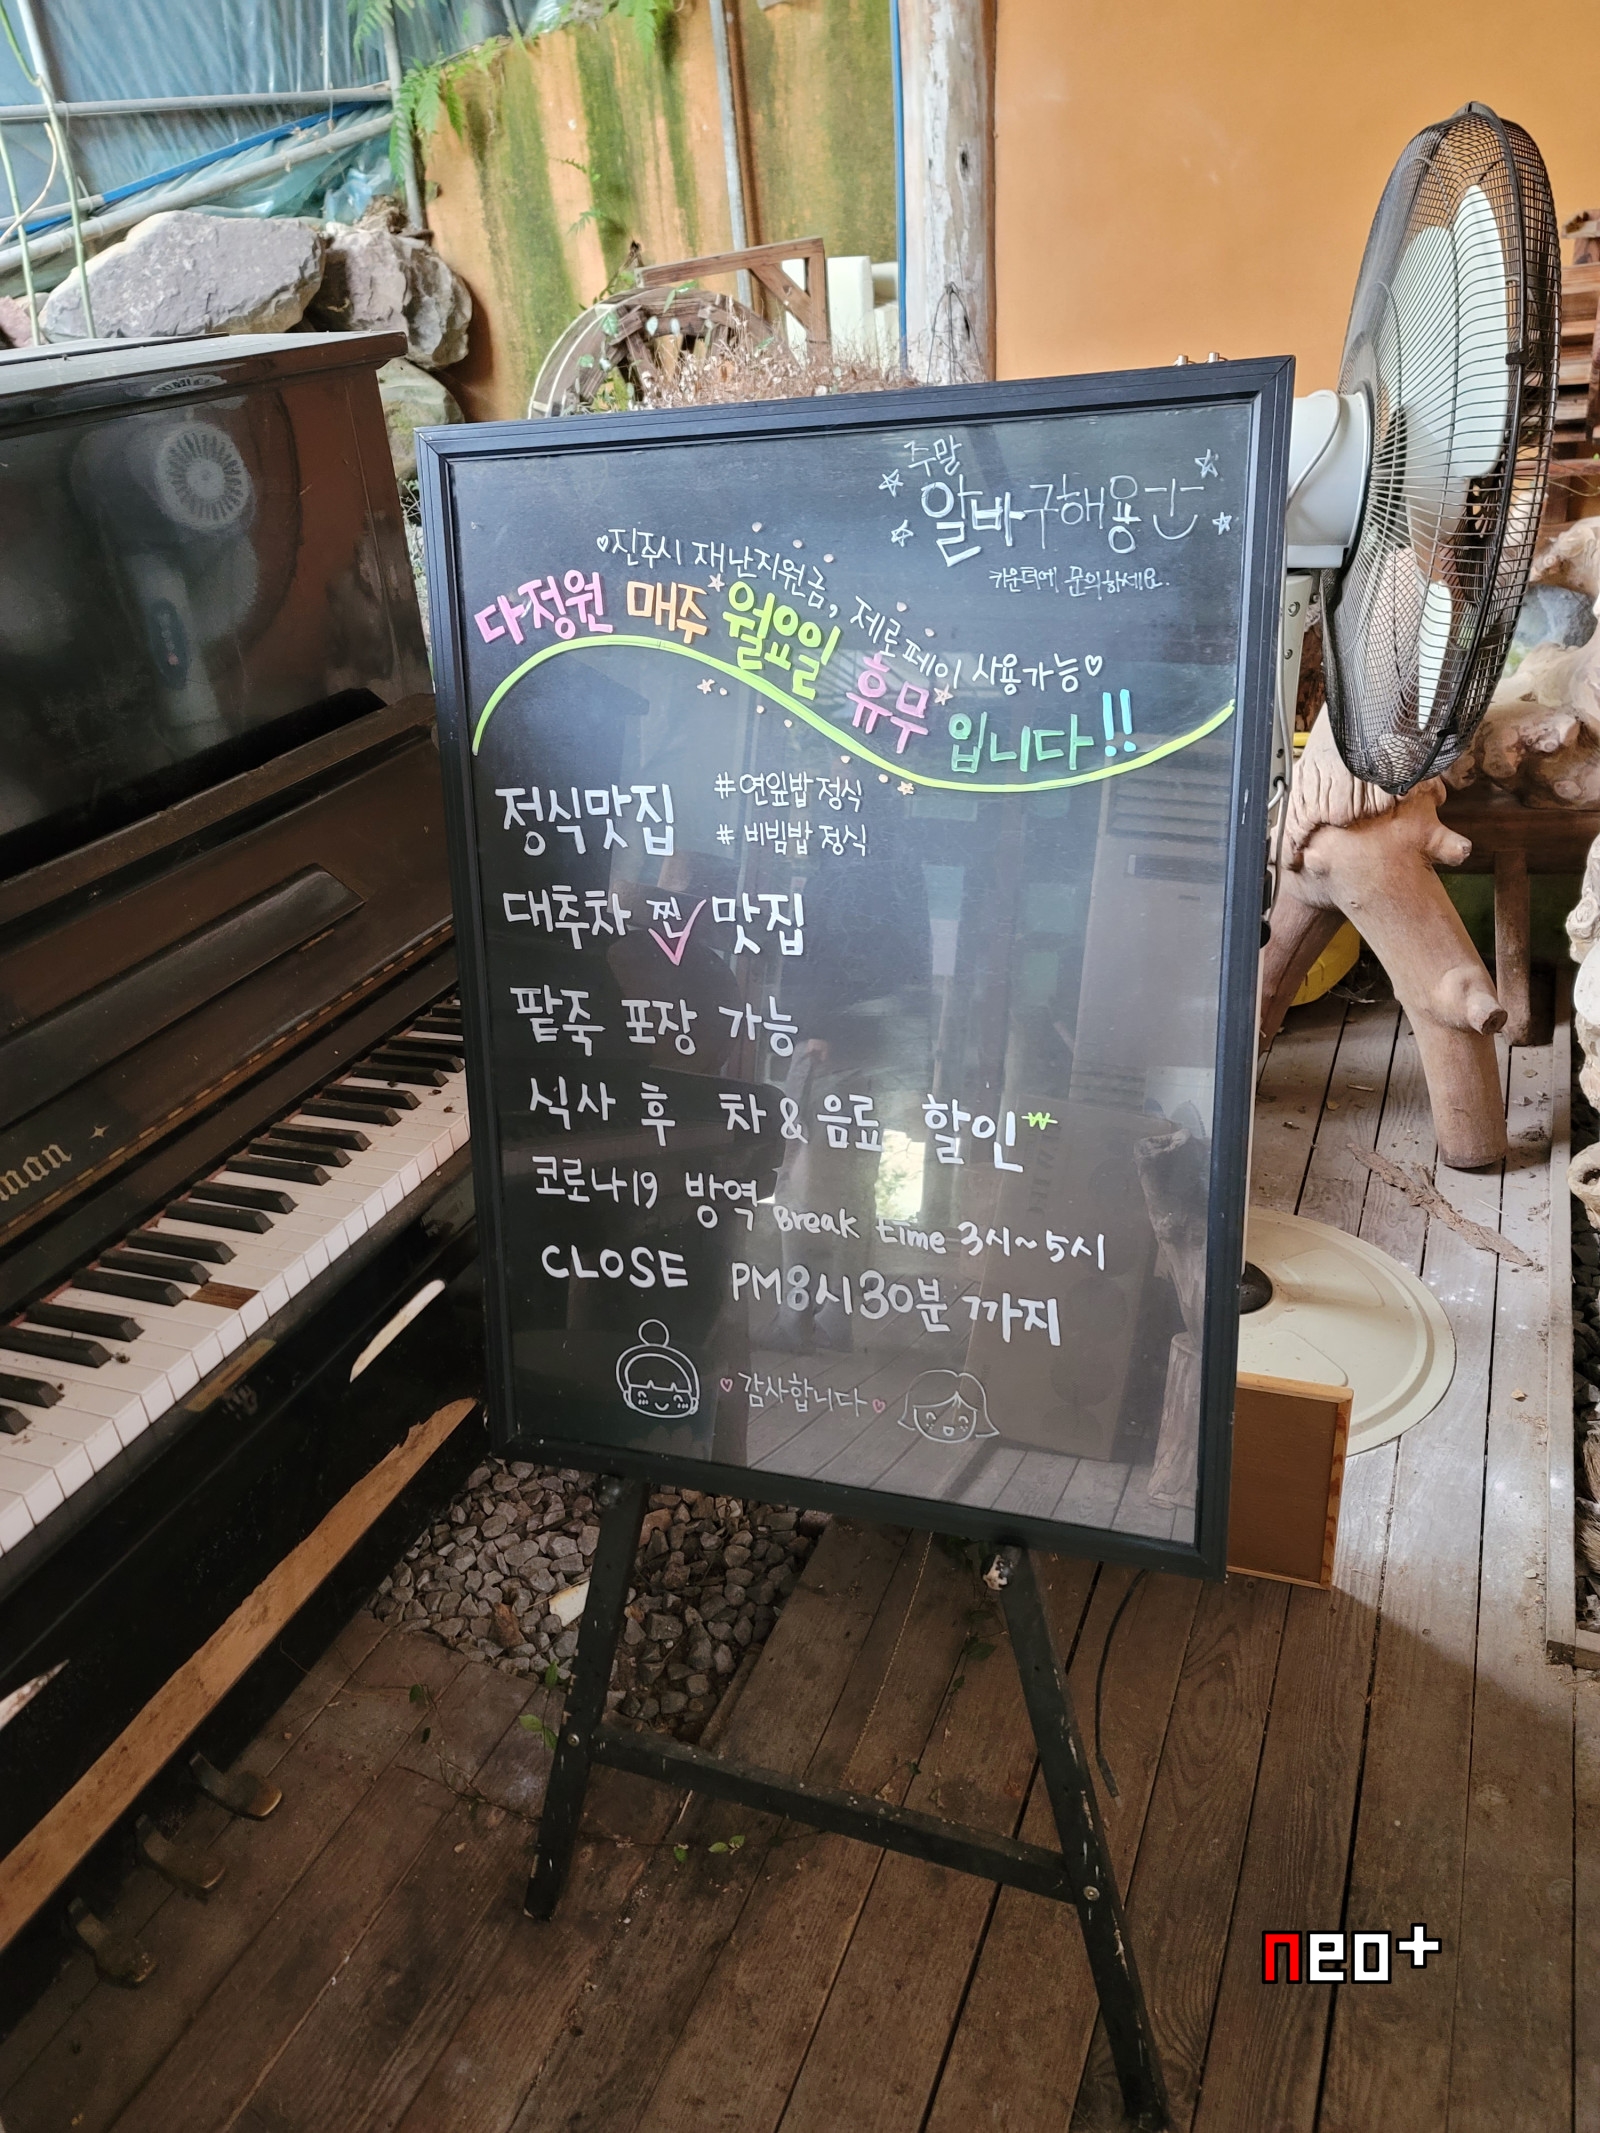 주말
알바구해용
카운터에 문의하세요.
진주시 재난지원금, 제로페이 사용가능
다정원 매주 월요일 휴무 입니다!!
정식맛집 #연잎밥정식
# 비빔밥 정식
대추차 찐 맛집
팥죽 포장 가능
식사 후 차 & 음료 할인₩
코로나19 방역 Break time 3시~5시
CLOSE PM8시30분까지
감사합니다
neo+